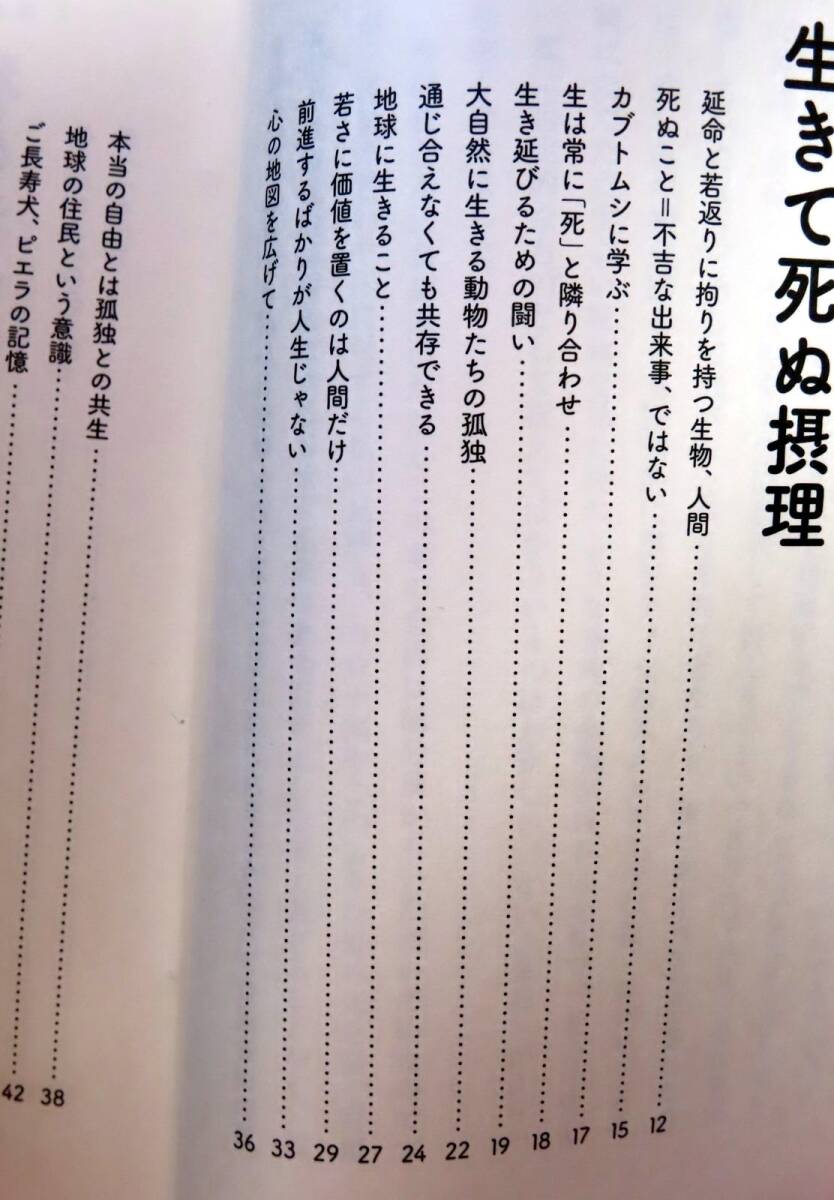 生きて死ぬ摂理
延命と若返りに拘りを持つ生物、人間 12
死ぬこと＝不吉な出来事、ではない 15
カブトムシに学ぶ 17
生は常に「死」と隣り合わせ 18
生き延びるための闘い 19
大自然に生きる動物たちの孤独 22
通じ合えなくても共存できる 24
地球に生きること 27
若さに価値を置くのは人間だけ 29
前進するばかりが人生じゃない 33
心の地図を広げて 36
本当の自由とは孤独との共生 38
地球の住民という意識 42
ご長寿犬、ピエラの記憶